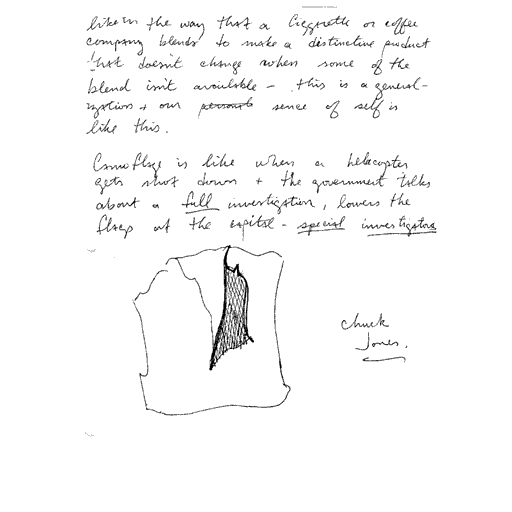 like in the way that a Ciggarette or coffee
company blends to make a distinctive product
that doesn't change when some of the
blend isn't available - this is a general-
ization + our personal sence of self is
like this.
Camoflage is like when a helecopter
gets shot down + the government talks
about a full investigation, lowers the
flags at the capital - special investigators
chuck
Jones.